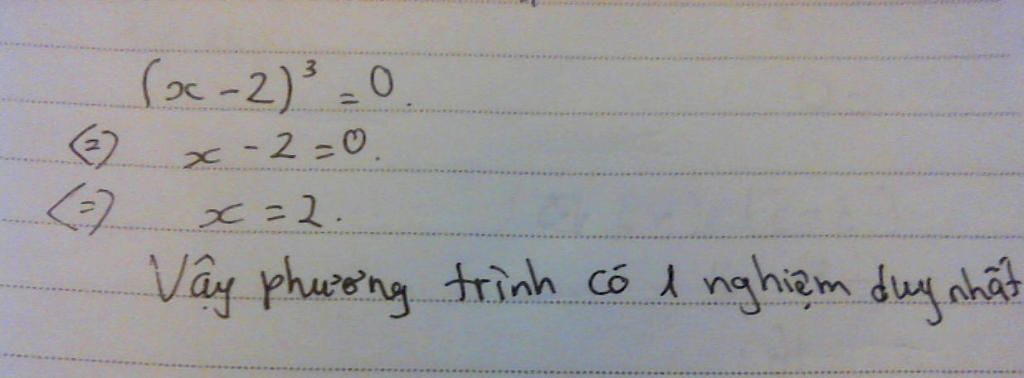 (x - 2)³ = 0.
<=> x - 2 = 0.
<=> x = 2.
Vậy phương trình có 1 nghiệm duy nhất